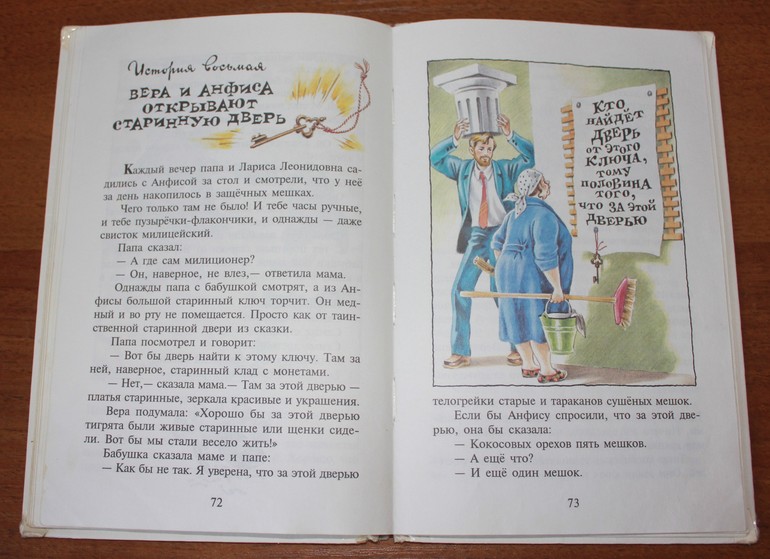 История восьмая
ВЕРА И АНФИСА
ОТКРЫВАЮТ
СТАРИННУЮ ДВЕРЬ
Каждый вечер папа и Лариса Леонидовна са-
дились с Анфисой за стол и смотрели, что у неё
за день накопилось в защёчных мешках.
Чего только там не было! И тебе часы ручные,
и тебе пузырёчки-флакончики, и однажды — даже
свисток милицейский.
Папа сказал:
— А где сам милиционер?
— Он, наверное, не влез,— ответила мама.
Однажды папа с бабушкой смотрят, а из Ан-
фисы большой старинный ключ торчит. Он мед-
ный и во рту не помещается. Просто как от таин-
ственной старинной двери из сказки.
Папа посмотрел и говорит:
— Вот бы дверь найти к этому ключу. Там за
ней, наверное, старинный клад с монетами.
— Нет,— сказала мама.— Там за этой дверью —
платья старинные, зеркала красивые и украшения.
Вера подумала: «Хорошо бы за этой дверью
тигрята были живые старинные или щенки сиде-
ли. Вот бы мы стали весело жить!»
Бабушка сказала маме и папе:
— Как бы не так. Я уверена, что за этой дверью
72
КТО
НАЙДЁТ
ДВЕРЬ
ОТ ЭТОГО
КЛЮЧА,
ТОМУ
ПОЛОВИНА
ТОГО,
ЧТО ЗА ЭТОЙ
ДВЕРЬЮ
телогрейки старые и тараканов сушёных мешок.
Если бы Анфису спросили, что за этой две-
рью, она бы сказала:
— Кокосовых орехов пять мешков.
— А ещё что?
— И ещё один мешок.
73